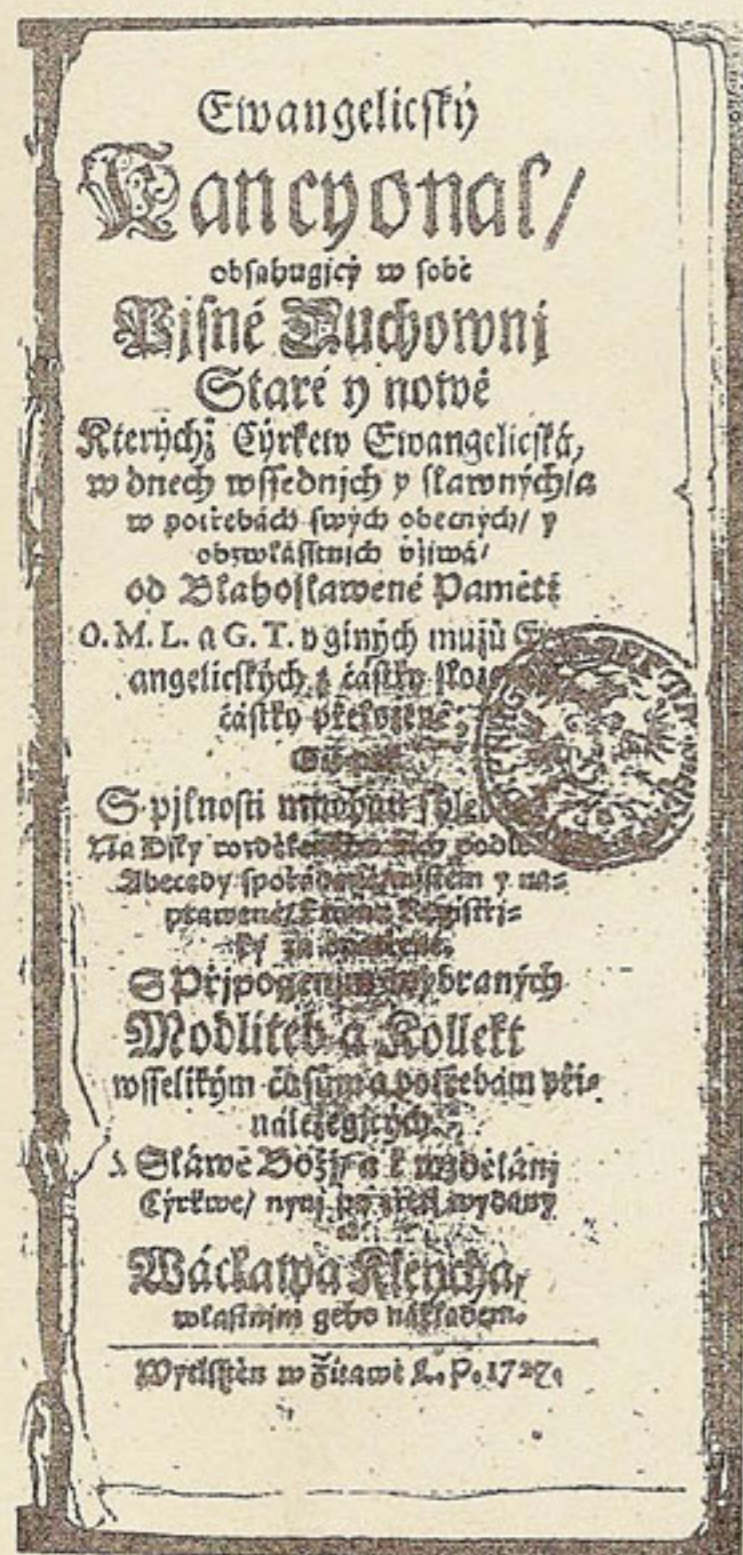 Ewangelicſký
Kancyonal/
obſahugjcý w ſobě
Pjſně Duchownj
Staré y nowé
Kterýchž Cýrkew Ewangelicſká,
w dnech wſſednjch y ſlawných/ a
w potřebách ſwých obecných/ y
obzwláſſtnjch vžjwá/
od Blahoſlawené Paměti
O. M. L. a G. T. y giných mužů Ew
angelicſkých, z částky
částky přeložené,
S pjlnoſti mnohau
Na Djly podlé
Abecedy na=
prawené/ Regiſtřj=
ky
S Přjpogenjm wybraných
Modliteb a Kollekt
wſſelikým čaſům a potřebám při=
náležegjcých.
Sláwě Božj/ a k wzdělánj
Cýrkwe/ nynj po wydaný
Wácſlawa Kleycha,
wlaſtnjm geho nákladem.
Wytiſſtěn w Žitawě L. P. 1727.